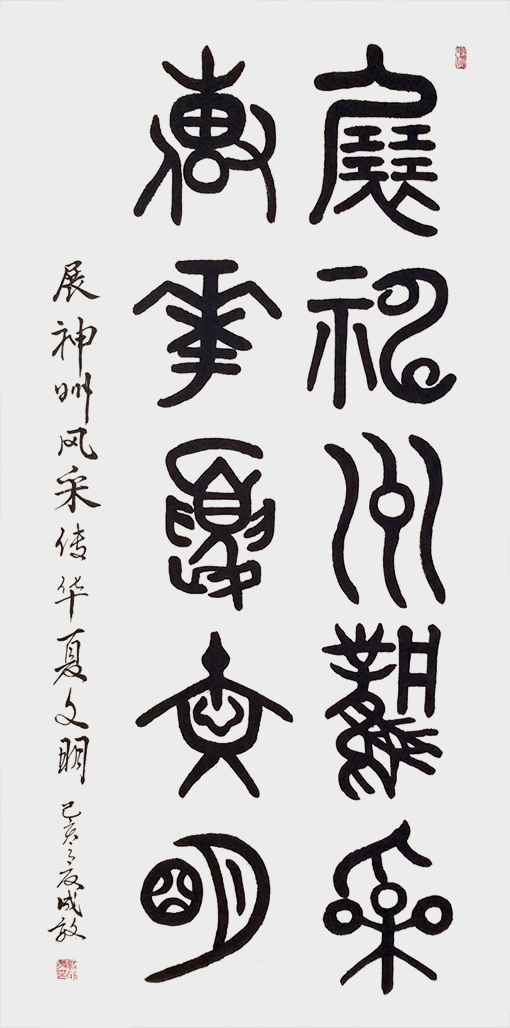 展神州风采
传华夏文明
展神州风采传华夏文明
己亥之夏成敏